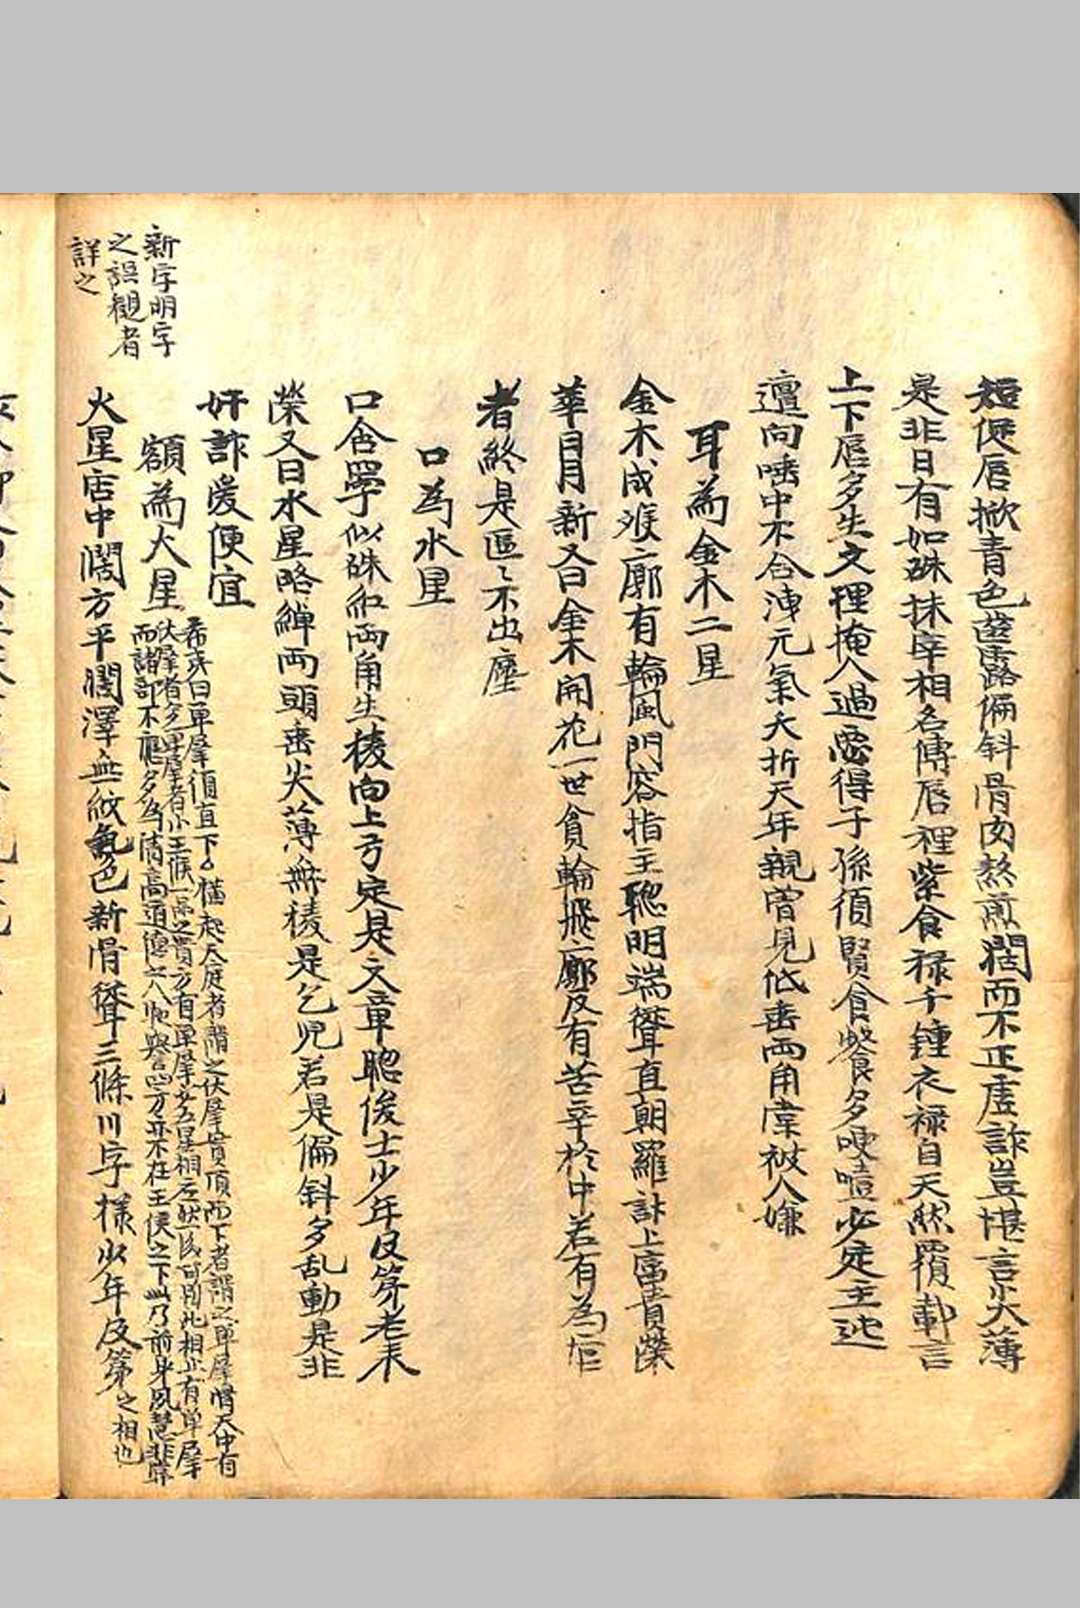 短促唇掀青色齒露偏斜骨肉煞煎濶而不正虛詐豈堪言尖薄
是非日有如硃抹宰相名傳唇裡紫食禄千鍾衣禄自天然覆載言
上下唇多生文理掩人過惡得子孫須賢食飡多哽噎必定主迍
邅向唾中不合洩元氣夭折天年親曾見低垂兩角常被人嫌
耳為金木二星
金木成雙廓有輪風門容指主聦明端聳直朝羅計上富貴榮
華月月新又曰金木開花一世貧輪飛廓反有苦辛於中若有為官
者終是區〻不出塵
口為水星
口含四字似硃紅兩角生稜向上方定是文章聦俊士少年及第老來
榮又曰水星略綽兩頭垂尖薄無稜是乞児若是偏斜多乱動是非
奸詐愛便宜
額為火星
希夷曰單犀須直下橫起天庭者謂之伏犀貫頂而下者謂之單犀骨天中有
伏犀者多單犀者少王侯一品之貴方有單犀五星相左然後可閗此相止有单犀
而諸部不應多為清高道德之人非在王侯之下此乃前身夙慧非
火星宫中濶方平潤澤無紋氣色新骨聳三條川字樣少年及第之相也
新字明字
之誤覌者
詳之